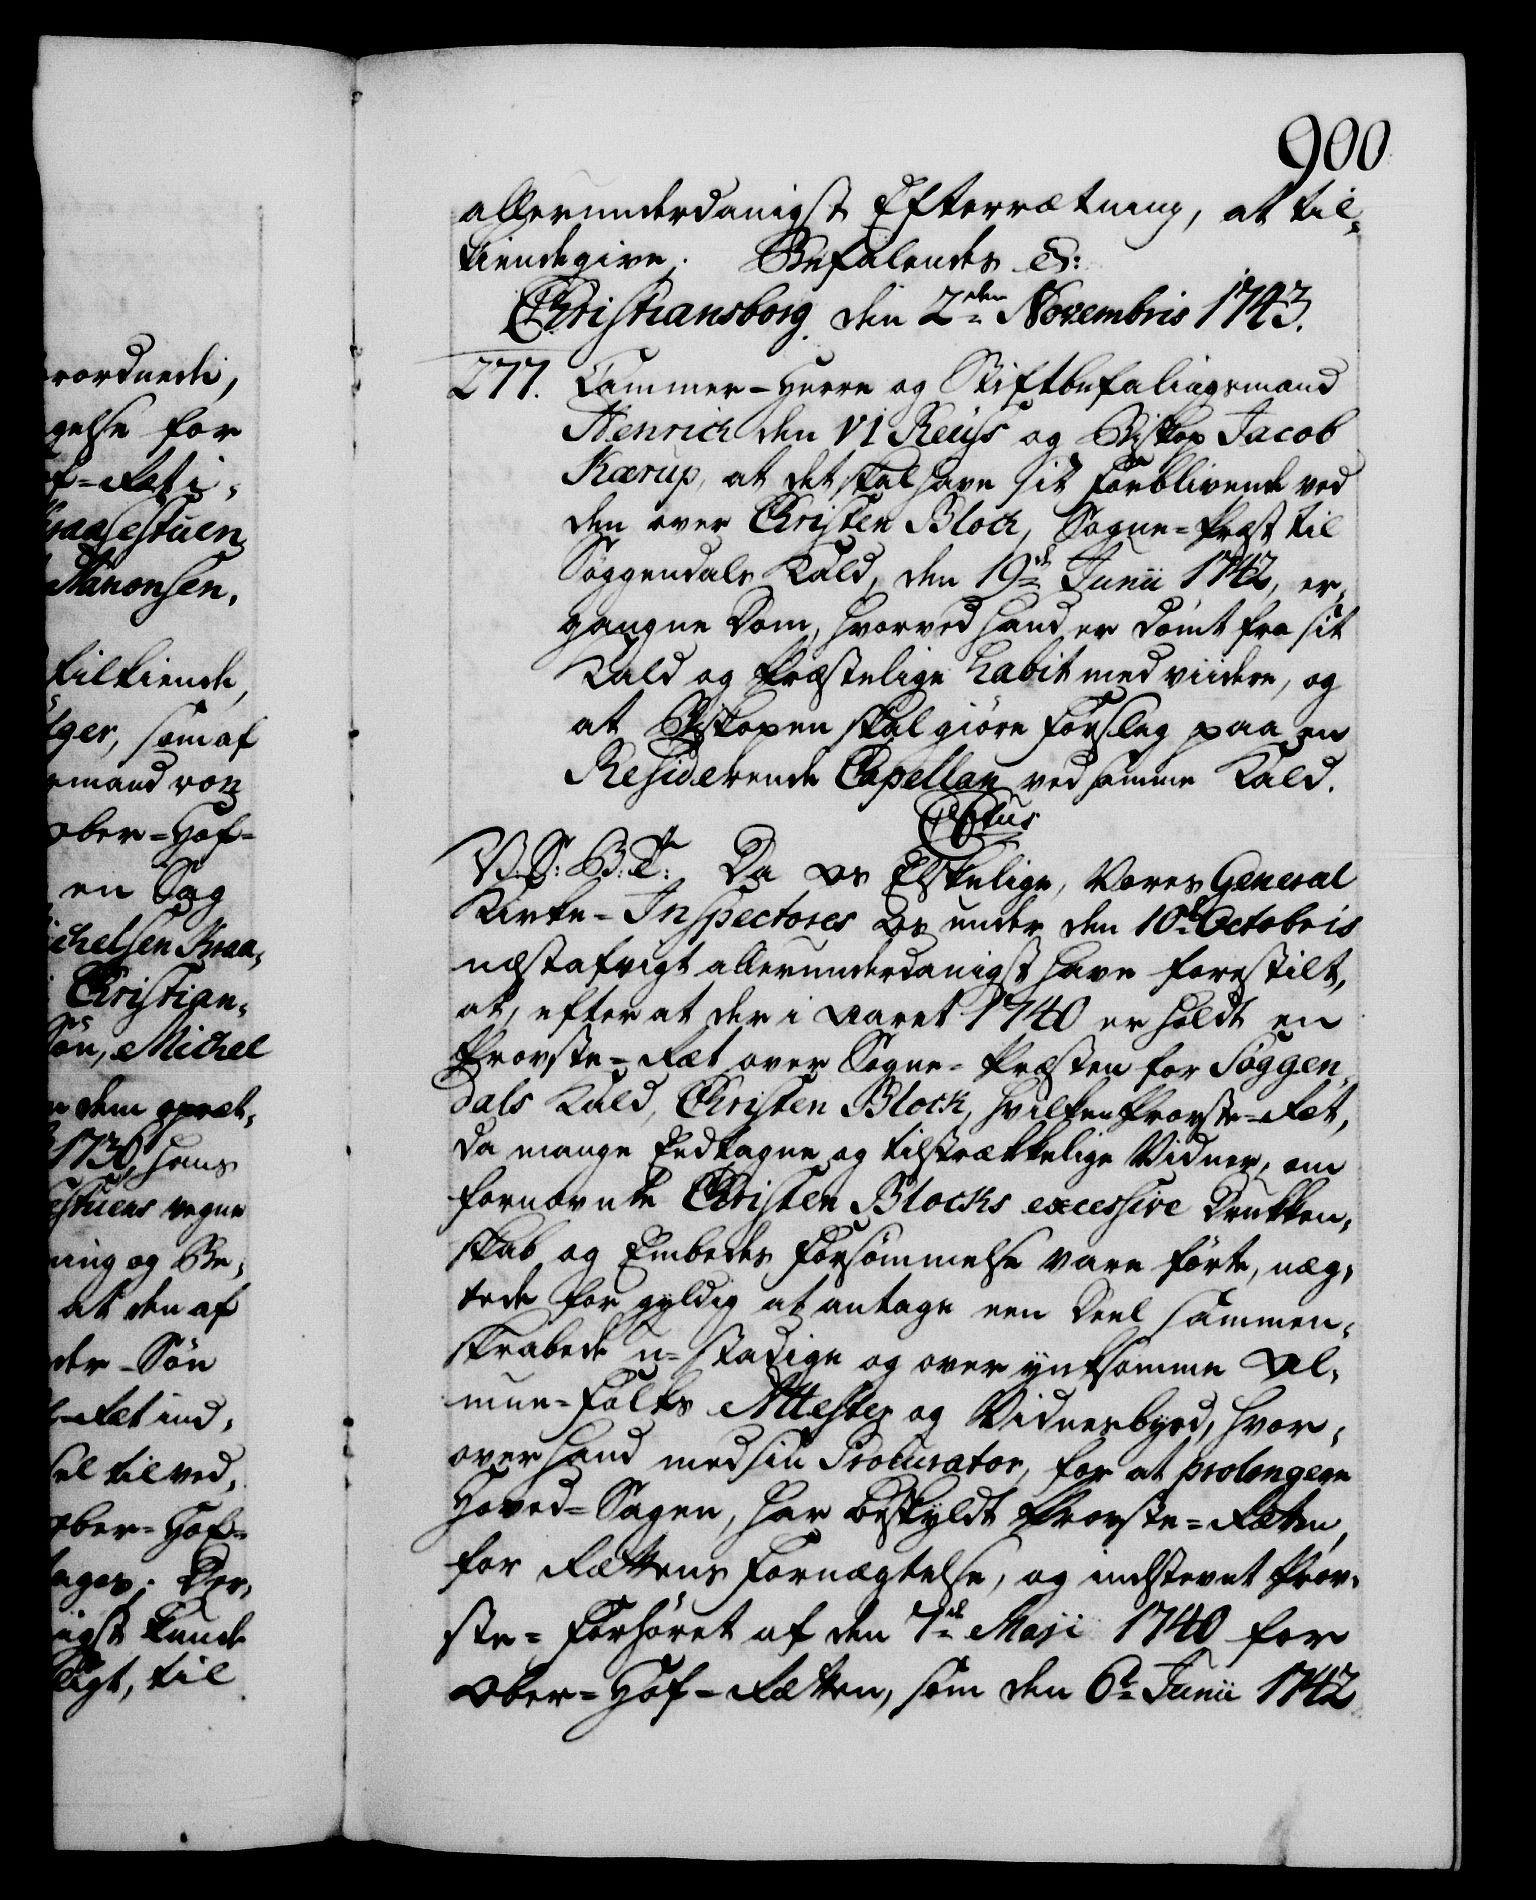 900
allerunderdanigst Efterrætning, at til-
kiendegive. Befalendes etc:
Christiansborg den 2den Novembris 1743.
277. Cammer-Herre og Stiftbefalingsmand
Henrich den VI Reüss og Biskop Jacob
Kærup, at det skal have sit Forblivende ved
den over Christen Block, Sogne-Præst til
Söggendals Kald, den 19de Junii 1742, er-
gangne Dom, hvorved hand er dömt fra sit
Kald og Præstelige Habit med viidere, og
at Biskopen skal giöre Forslag paa en
Residerende Capellan ved samme Kald.
V. S: B. T: Da Os Elskelige, Vores General
Kirke-Inspectores Os under den 10de Octobris
næstafvigt allerunderdanigst have forestilt,
at, efter at der i Aaret 1740 er holdt en
Provste-Ræt over Sogne-Præsten for Söggen-
dals Kald, Christen Block, hvilken Provste-Ræt,
da mange Eedtagne og tilstrækkelige Vidner, om
fornævnte Christen Blocks excessive Drukken-
skab og Embeds Forsömmelse vare förte, næg-
tede for gyldig at antage een Deel sammen-
skrabede u-stadige og over ynksomme Al-
mue-Folks Attester og Vidnesbyrd, hvor-
over hand med sin Procurator, for at prolongere
Hoved-Sagen, har beskyldt Provste-Rætten
for Rættens Fornægtelse, og indstevnt Prov-
ste-Forhöret af den 7de Maji 1740 for
Ober-Hof-Rætten, som den 6te Junii 1742
rordnede,
gelse for
f-Ræt i,
Kraaestuen
til kiende,
ger, som af
mand von
Ober-Hof-
en Sag
ichelsen Kraa-
Christian-
Sön, Michel
1736, hans
estuens vegne
ning og Be-
at den af
der-Sön
Ræt ind-
sel til ved-
Ober-Hof-
tages. Der-
igst kunde
ligt, til